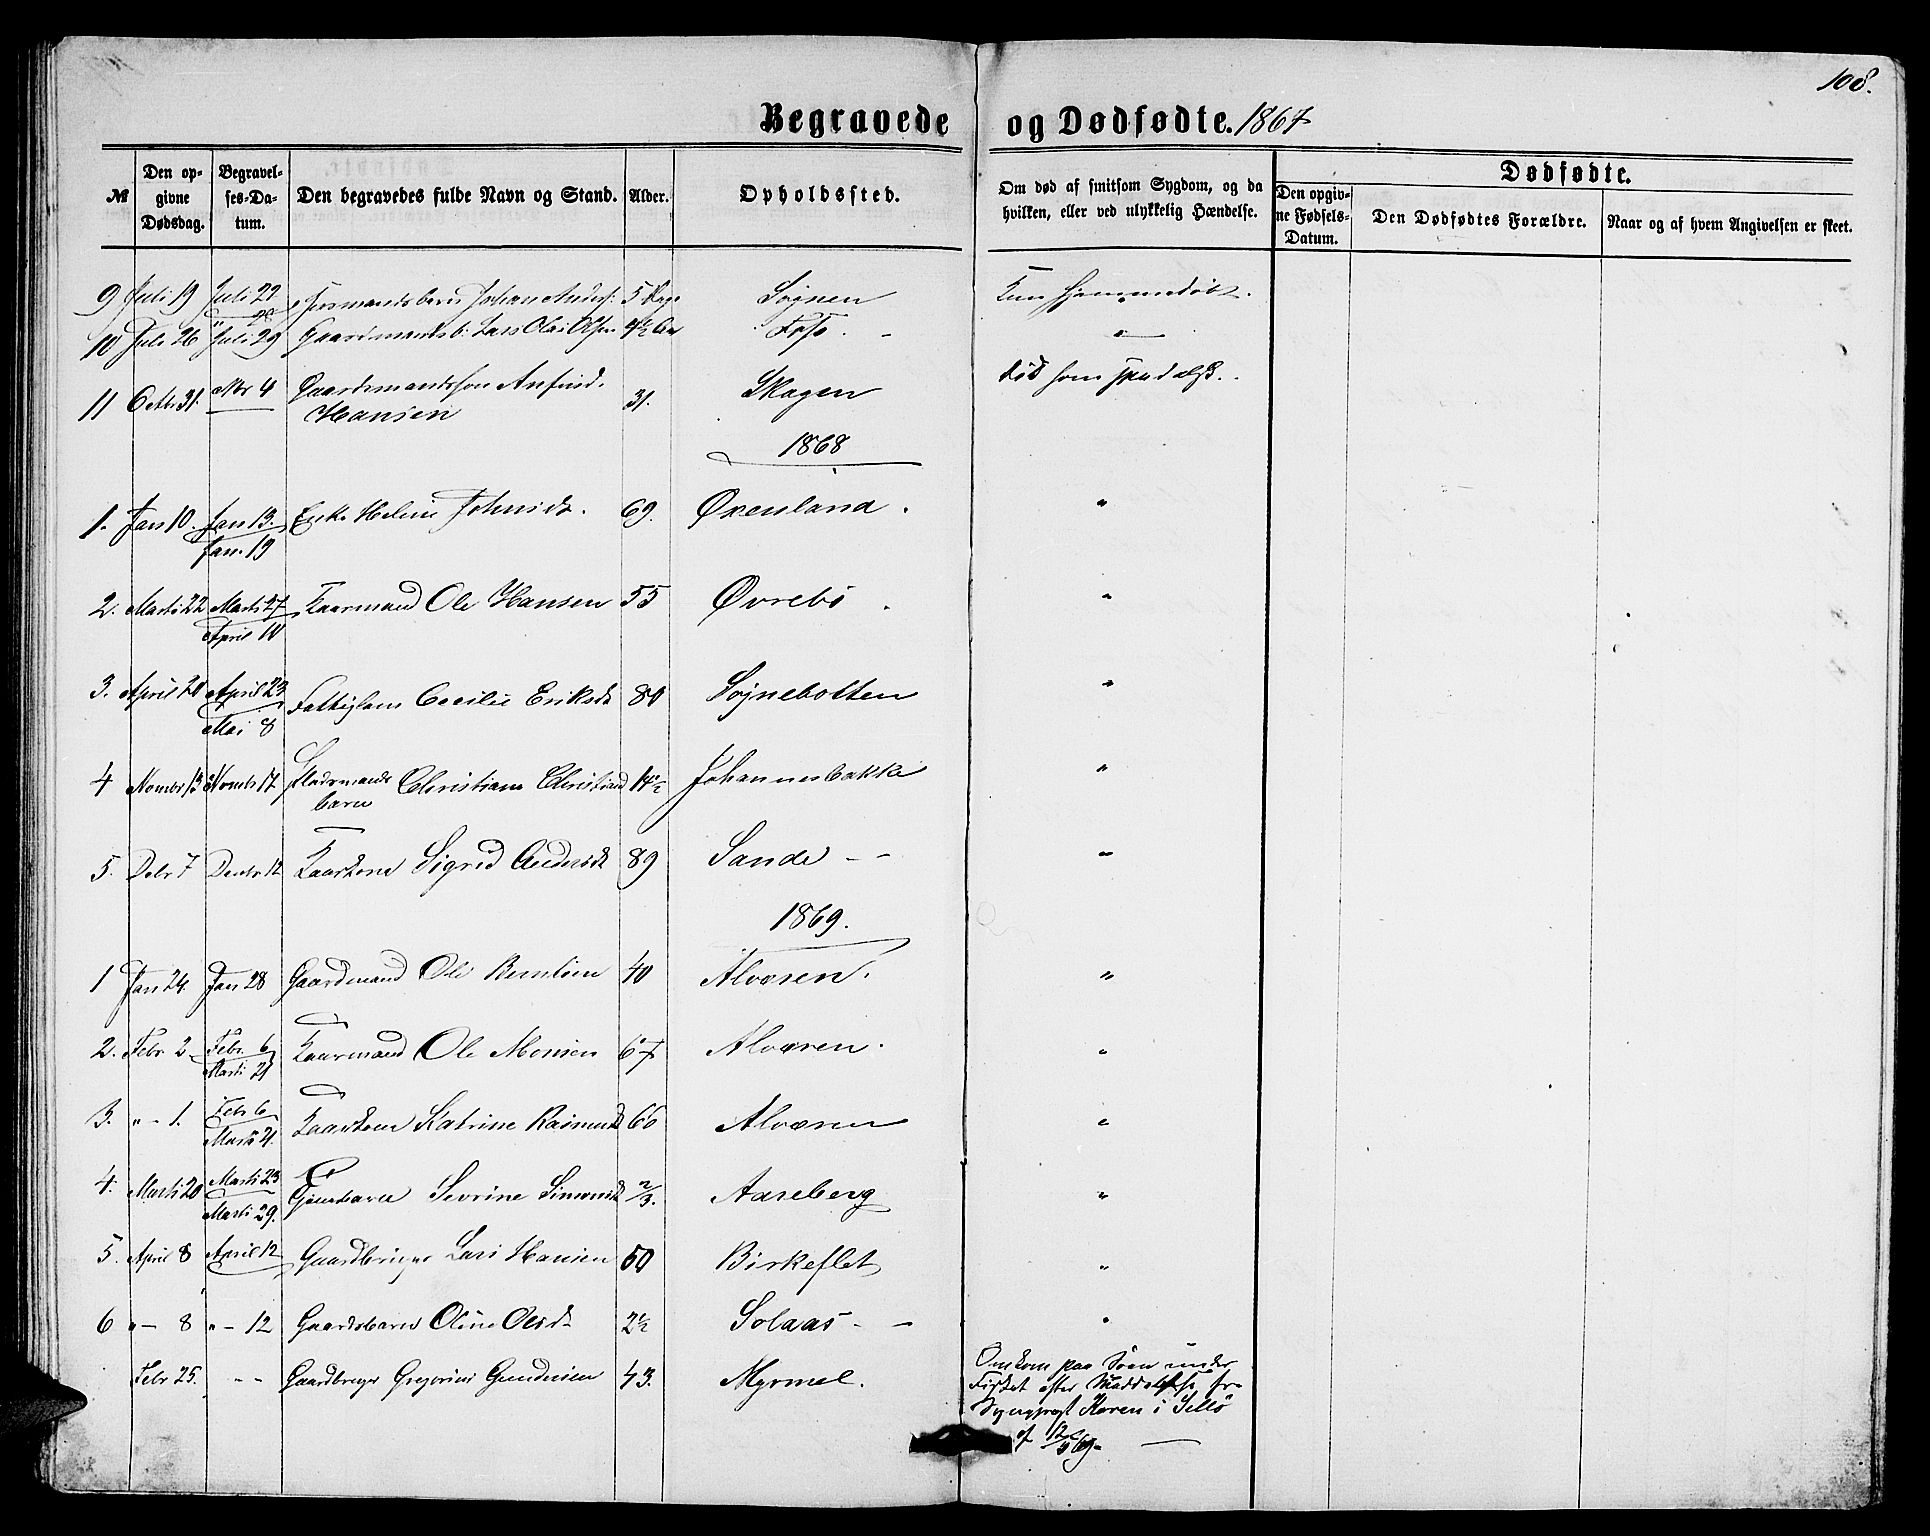 108.
Begravede og Dødfødte. 1867
№
Den opgivne Dødsdag.
Begravelses-Datum.
Den begravedes fulde Navn og Stand.
Alder.
Opholdssted.
Om død af smitsom Sygdom, og da hvilken, eller ved ulykkelig Hændelse.
Dødfødte.
Den opgivne Fødsels-Datum.
Den Dødfødtes Forældre.
Naar og af hvem Angivelsen er skeet.
9 Juli 19 Juli 22 Johan Anders: 5 Dage Søjnen Kun hjemmedøbt.
10 Juli 26 Juli 29 Gaardmandsb. Lars Olai Olsen 4½ Fosse - "
11 Octbr 31. Nbr 4 Gaardmandssøn Anfind. 31. Skagen død som spedalsk.
Hansen
1868
1. Jan 10. Jan 13. Helene Johnsdt. 69. Øxenland. "
Jan. 19
2. Marts 22 Marts 27 Kaarmand Ole Hansen 55 Øvrebø. "
April 10
3. April 20 April 23 Fattiglem Cecilie Eriksdt 80 Søjnebotten "
Mai 8
4 Novmbr 13 Novmbr 17 Pladsmands Christiane Christiansd 14½ Johannesbakke "
barn
5. Debr 7 Decbr 12 Kaarkone Sigrid Andersdt 89 Sande - - "
1869.
1 Jan 24. Jan 28 Gaardmand Ole Berntsen 40 Alværen. "
2. Febr 2 Febr. 6 Kaarmand Ole Monsen 67 Alværen. "
Marts 21
3. " - 1. Febr 6 Kaarkone Katrine Rasmusdt 66 Alværen "
Marts 21.
4. Marts 20 Marts 23 Sevrine Simonsdt 2/3. Aaseberg "
Marts 29.
5. April 8 April 12 Gaardbruger Lars Hansen 50 Birkeflet "
6 " - 8 " - 12 Gaardsbarn Oline Olsdt 2½ Solaas - - "
Febr 25. " - Gaardbruger Gregorius Gundersen 43. Myrmel. Omkom paa Søen under
Fisket efter Meddelelse fra
Sogneprest Koren i Sellø
af 12/4 69 -